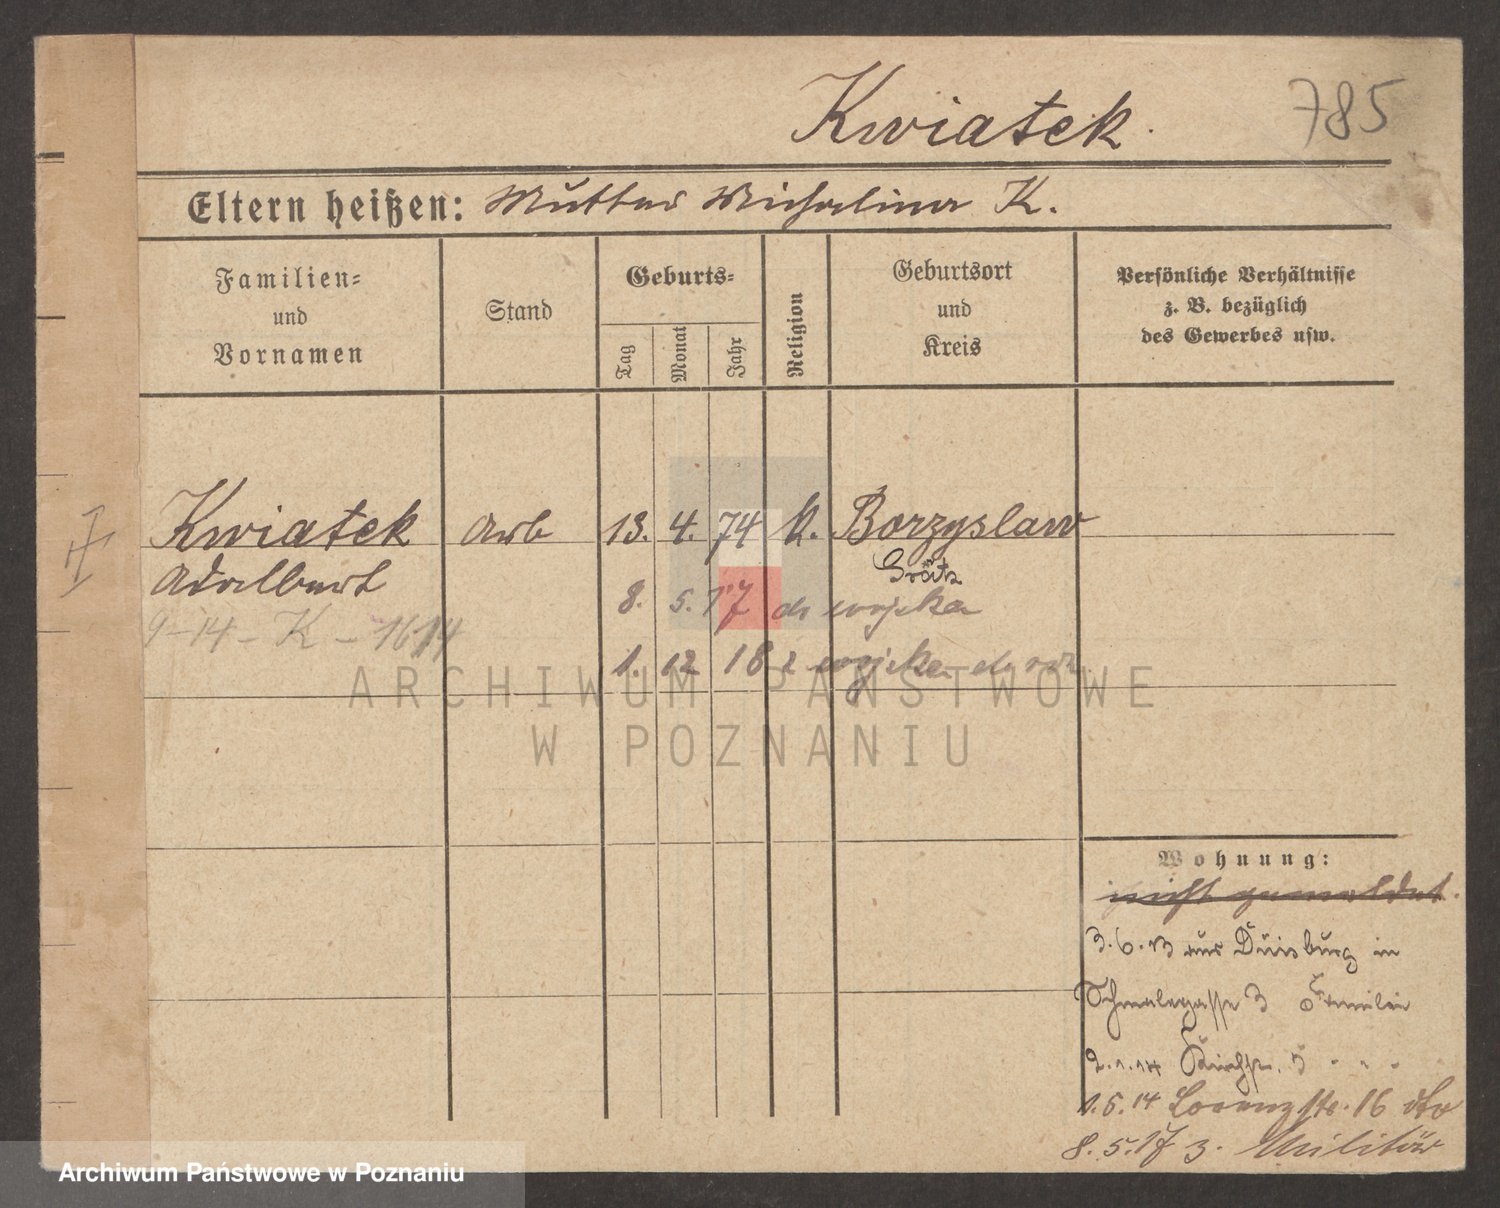 Kwiatek.
785
Eltern heißen: Mutter Michalina K.
Familien-
und
Vornamen
Stand
Geburts-
Tag
Monat
Jahr
Religion
Geburtsort
und
Kreis
Persönliche Verhältnisse
z. B. bezüglich
des Gewerbes usw.
Kwiatek Arb 13. 4. 74 k. Borzyslaw
Adalbert Grätz
8. 5. 17 do wojska
9-14-K-1614
1. 12 18 z wojska
ARCHIWUM PAŃSTWOWE
W POZNANIU
Wohnung:
nicht gemeldet.
3.6.13 aus Duisburg in
Schmalegasse 3 Familie
2.1.14 Kirchstr. 3 " " "
1.5.14 Lorenzstr. 16 dto
8.5.17 z. Militär
Archiwum Państwowe w Poznaniu